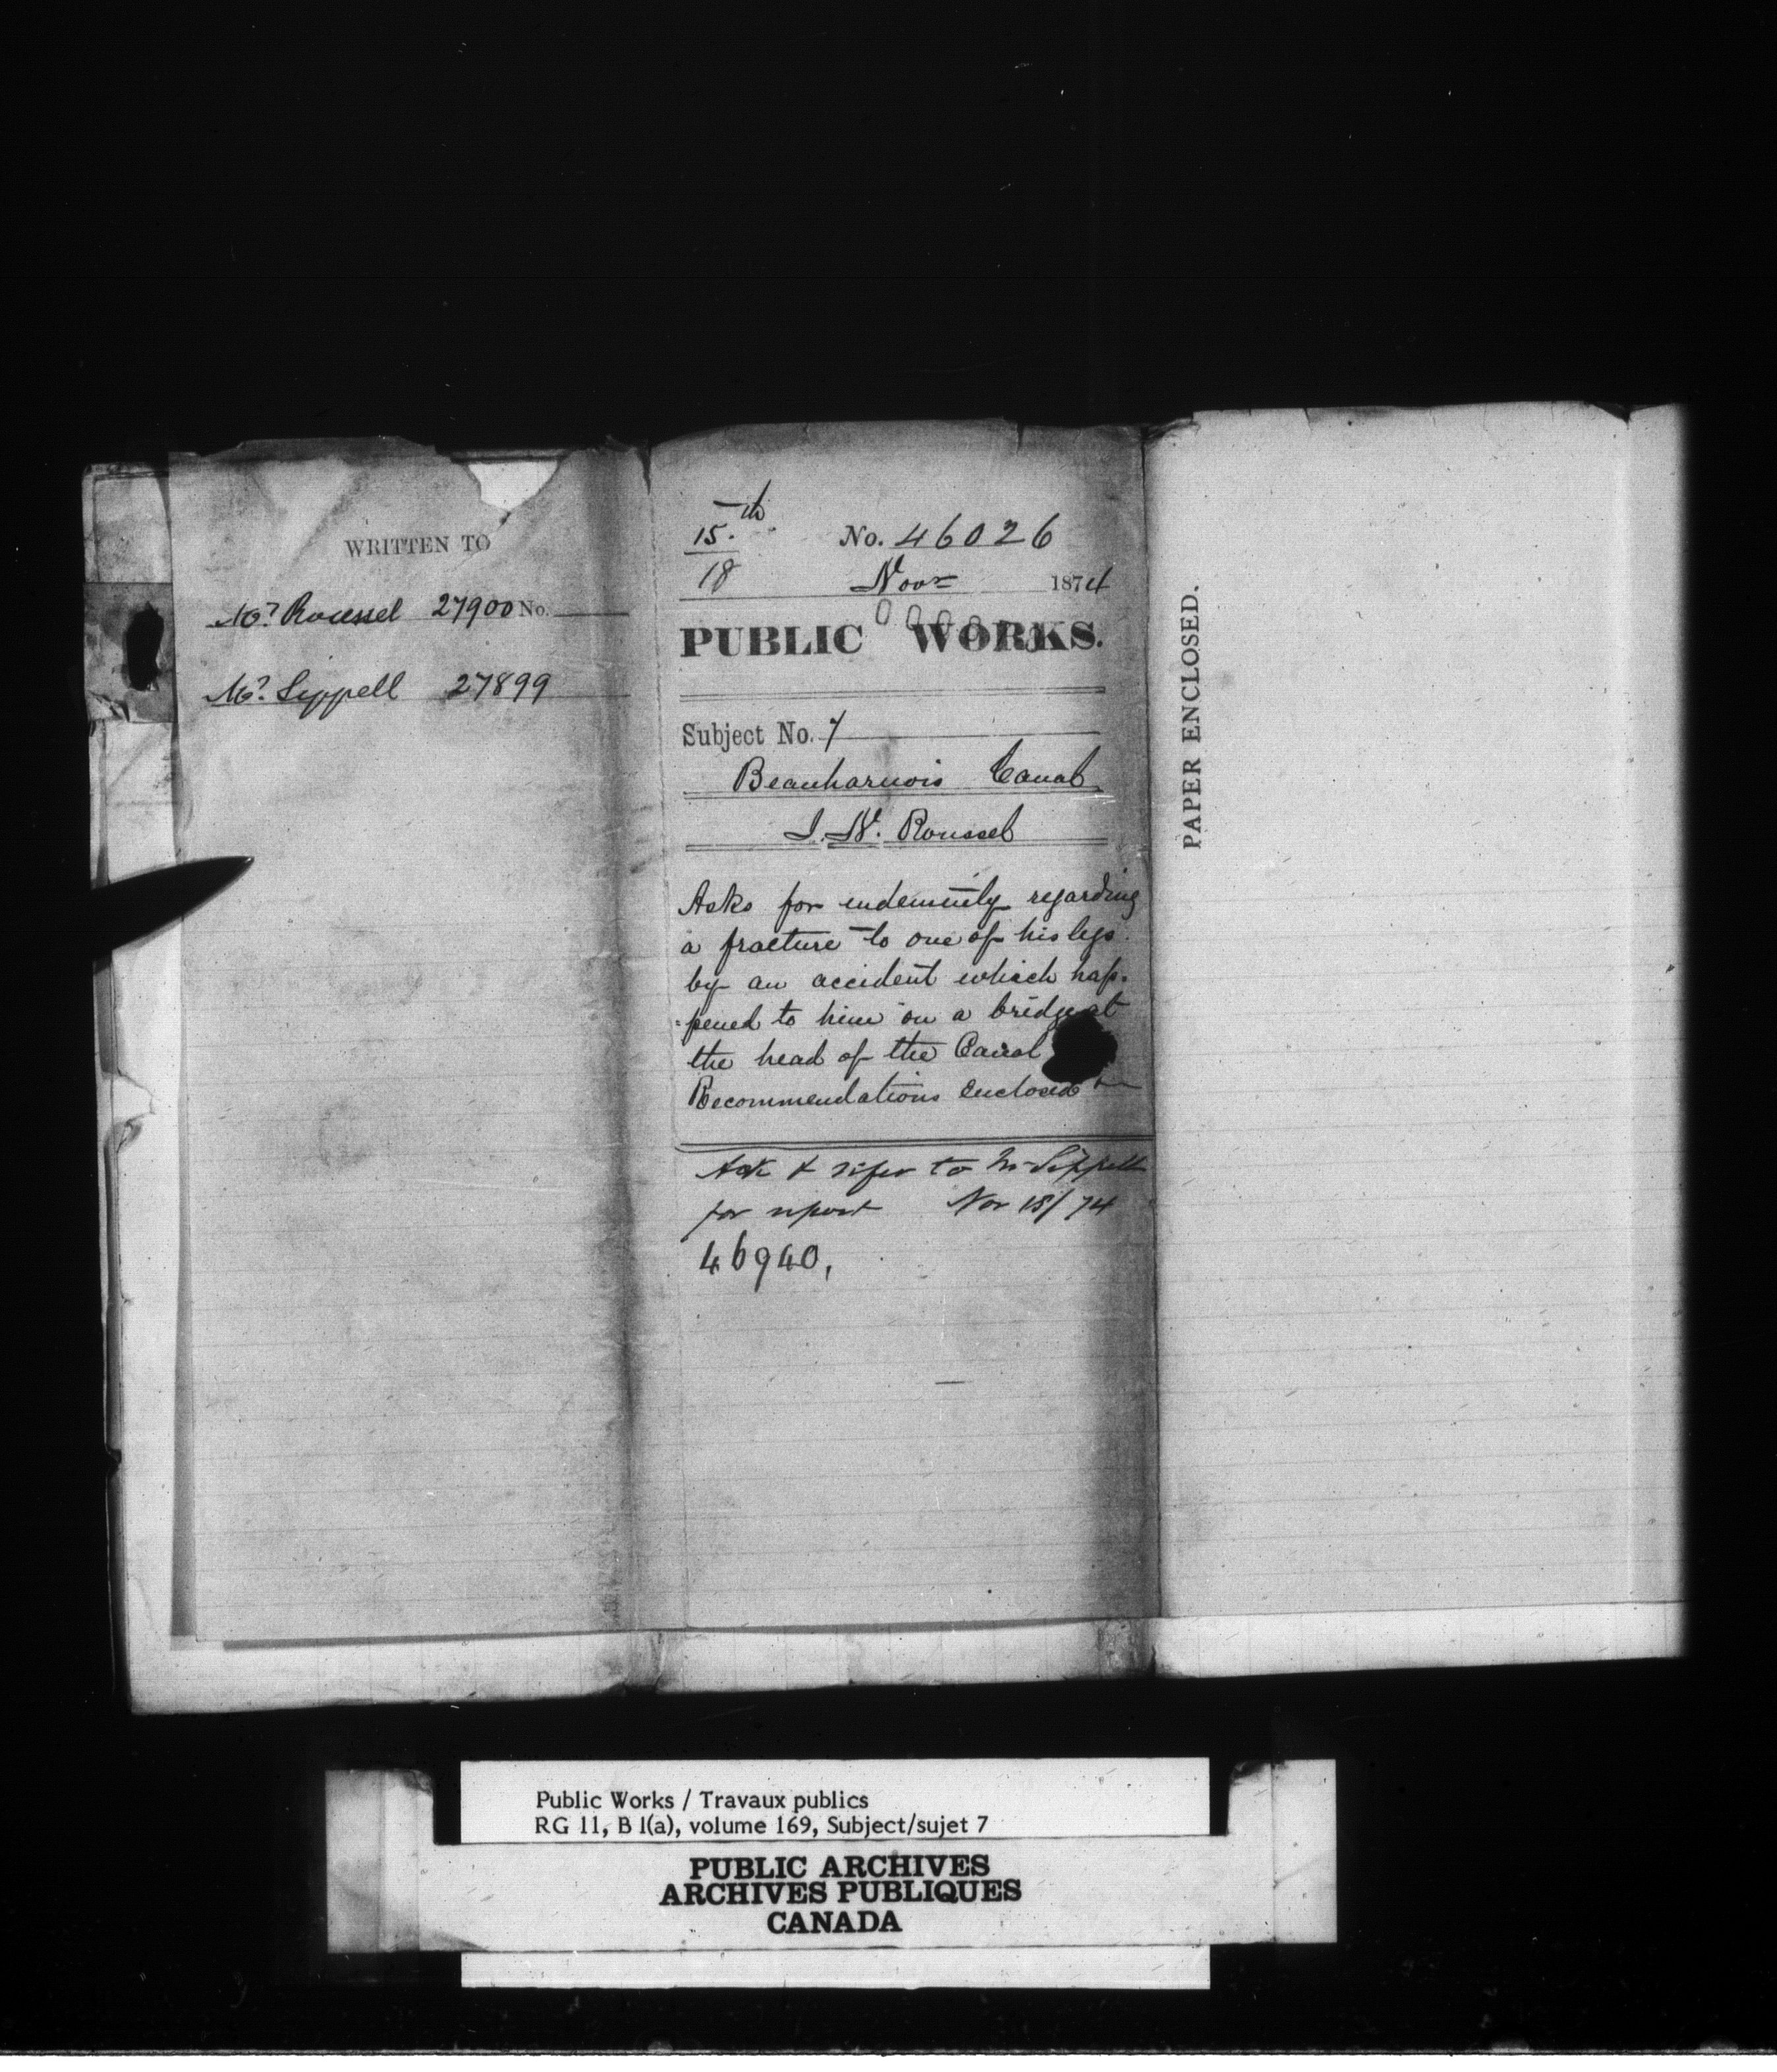 WRITTEN TO
Mr. Roussel 27900 No.
Mr. Sippell 27899
15.th No. 46026
18 Novr 1874
PUBLIC WORKS.
Subject No. 7
Beauharnois Canal
J. N. Roussel
Asks for indemnity regarding
a fracture to one of his legs
by an accident which hap-
-pened to him on a bridge at
the head of the Canal
Recommendations enclosed
Ack & refer to Mr Sippell
for report Nov 18/74
46940,
PAPER ENCLOSED.
Public Works / Travaux publics
RG 11, B 1(a), volume 169, Subject/sujet 7
PUBLIC ARCHIVES
ARCHIVES PUBLIQUES
CANADA